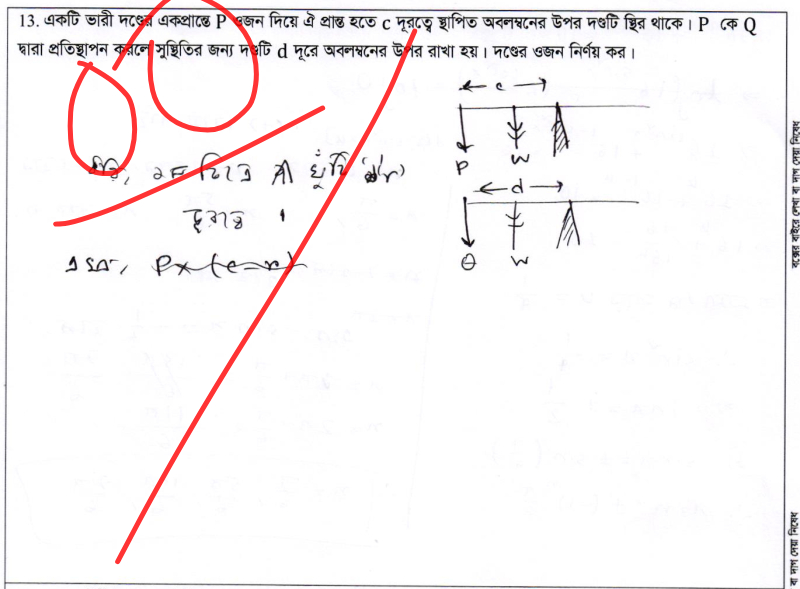 13. একটি ভারী দণ্ডের একপ্রান্তে P ওজন দিয়ে ঐ প্রান্ত হতে c দূরত্বে স্থাপিত অবলম্বনের উপর দণ্ডটি স্থির থাকে। P কে Q
দ্বারা প্রতিস্থাপন করলে সুস্থিতির জন্য দণ্ডটি d দূরে অবলম্বনের উপর রাখা হয়। দণ্ডের ওজন নির্ণয় কর।
c
P W
ধরি, ১ম চিত্রে
d
দূরত্ব ।
Q W
এখন, P×(c-x)
বক্সের বাইরে লেখা বা দাগ দেয়া নিষেধ
বা দাগ দেয়া নিষেধ